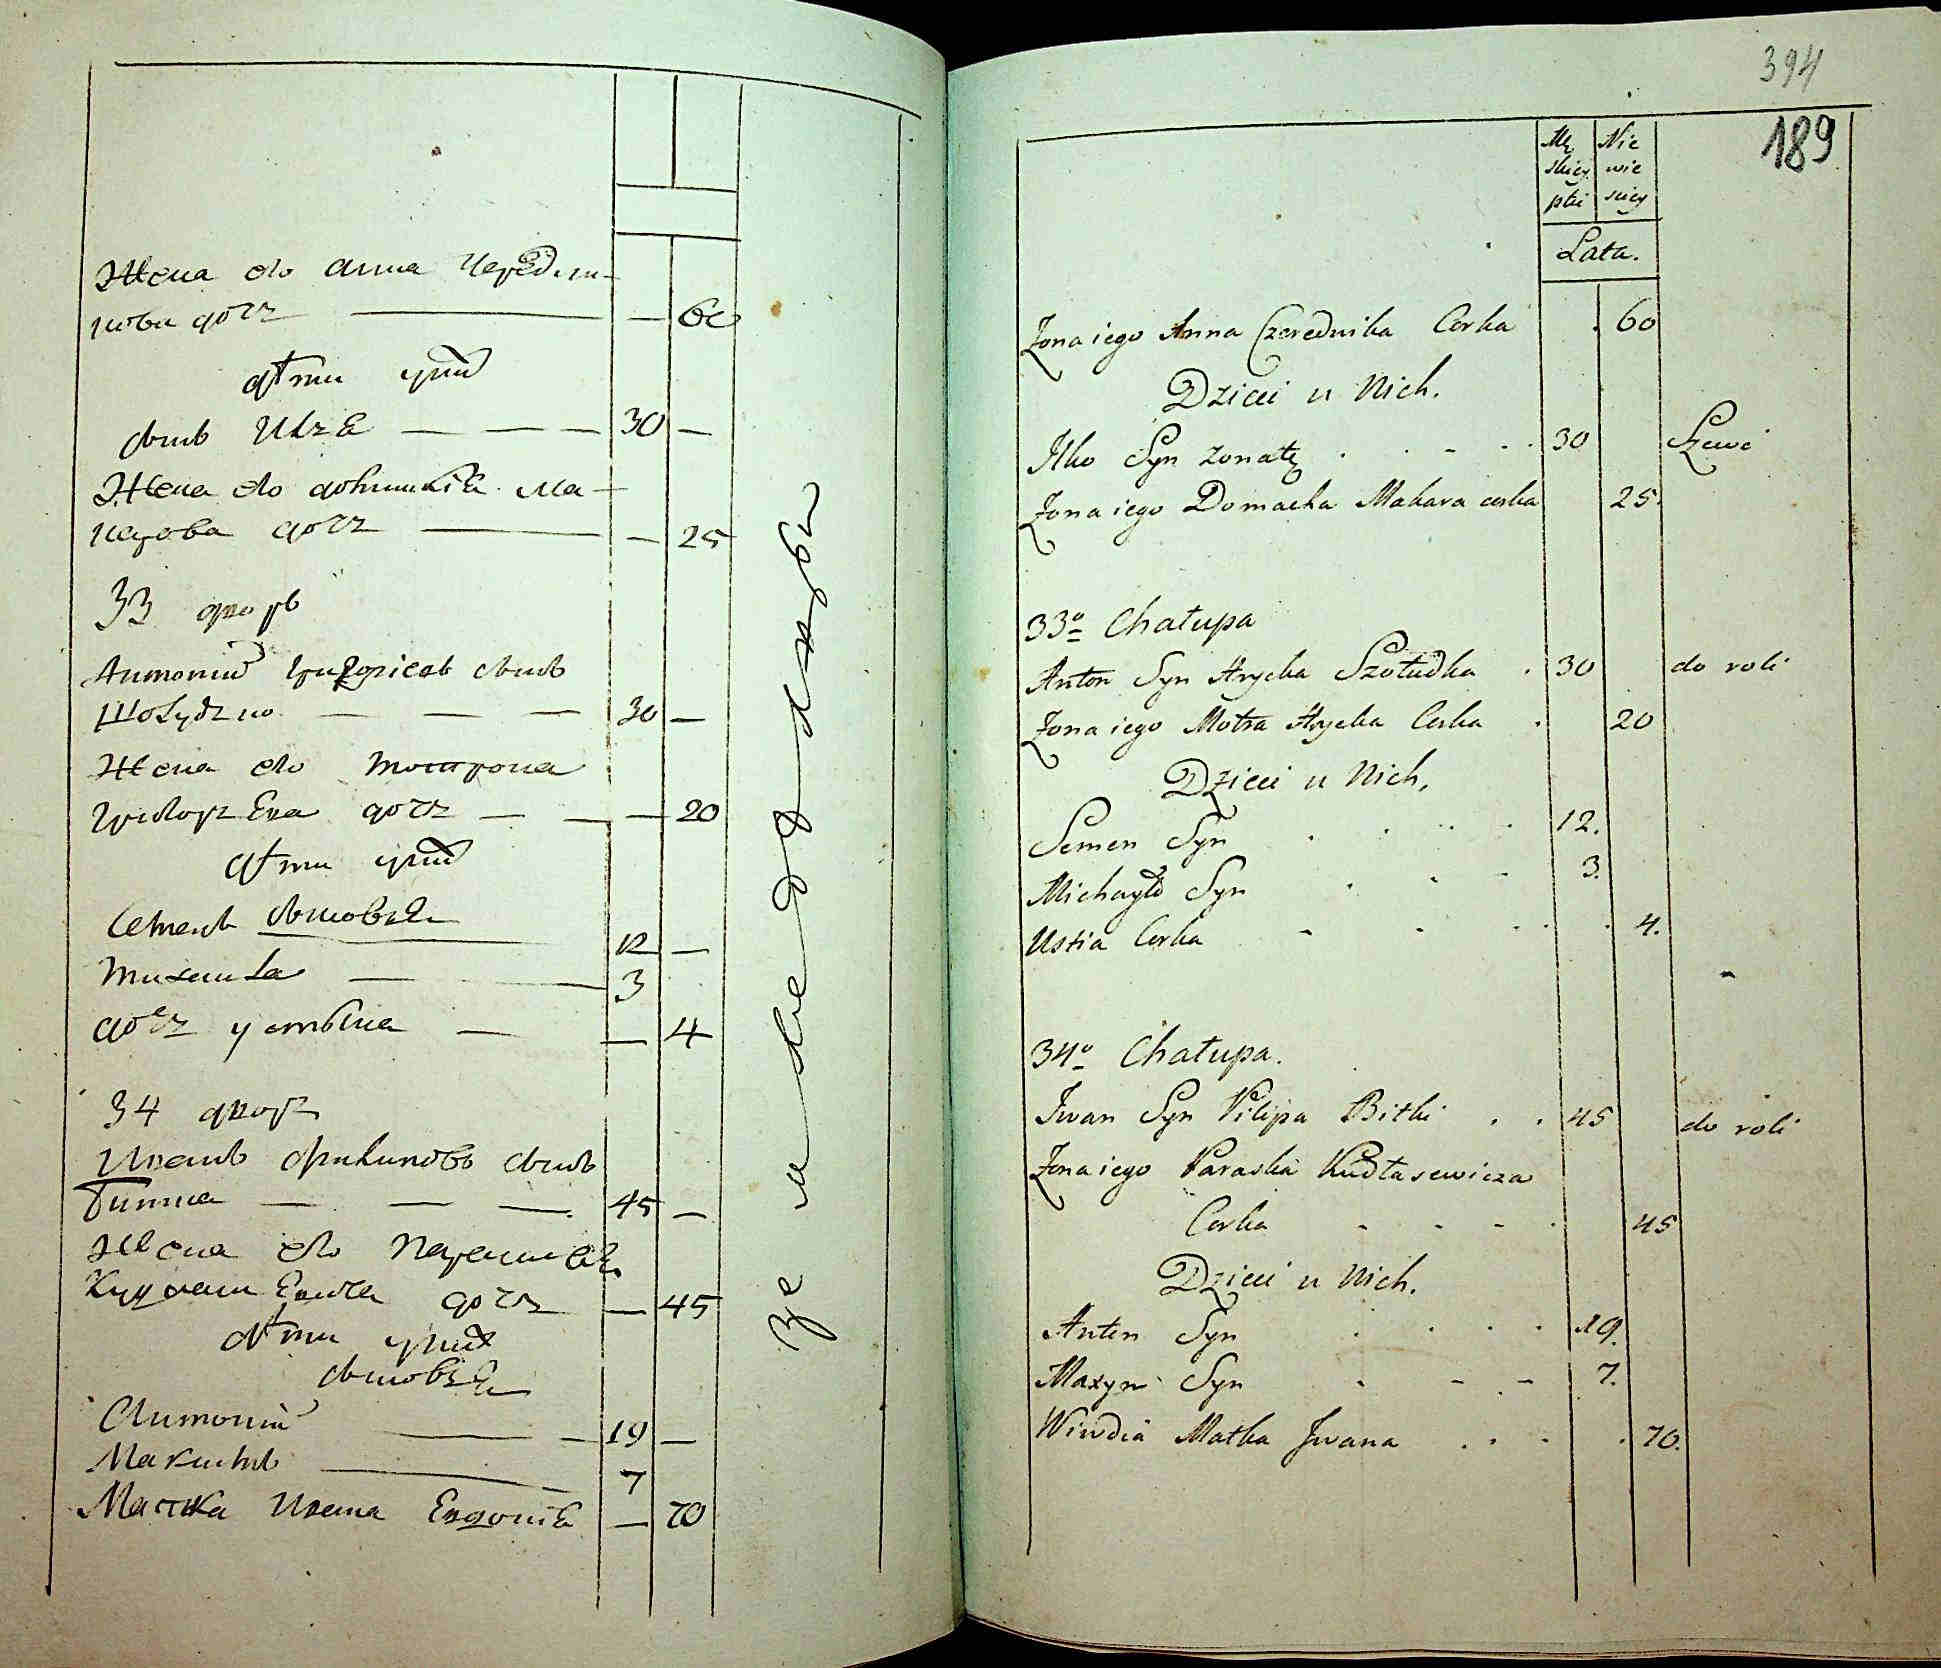 Жена его Анна Чередни-
кова дочь — 60
дѣти ихъ
сынъ Илья 30 —
Жена его Домникія Ма-
карова дочь — 25
33 дворъ
Антоній Григоріевъ сынъ
Шолудко 30 —
Жена его Мотрона
Григорьева дочь — 20
дѣти ихъ
Семенъ сыновья 12 —
Михаила 3
дочь Устинія — 4
34 дворъ
Иванъ Филиповъ сынъ
Битка 45 —
Жена его Параскевія
дочь — 45
дѣти ихъ
сыновья
Антоній 19 —
Максимъ 7
Матка Ивана Евдокія — 70
394
189
Mę skiey płci Nie wie skiey
Lata.
Żona iego Anna Czerednika Corka 60
Dzieci u Nich.
Ilko Syn żonaty 30 Szewc
Żona iego Domacha Makara corka 25.
33º Chałupa
Anton Syn Hrycka Szołudka 30 do roli
Żona iego Motra Hrycka Corka 20
Dzieci u Nich,
Semen Syn 12.
Michayło Syn 3.
Ustia Corka 4.
34º Chałupa.
Iwan Syn Pilipa Bitki 45 do roli
Żona iego Paraska Kudłasewicza
Corka 45
Dzieci u Nich.
Anton Syn 19.
Maxym Syn 7.
Wiwdia Matka Iwana 70.